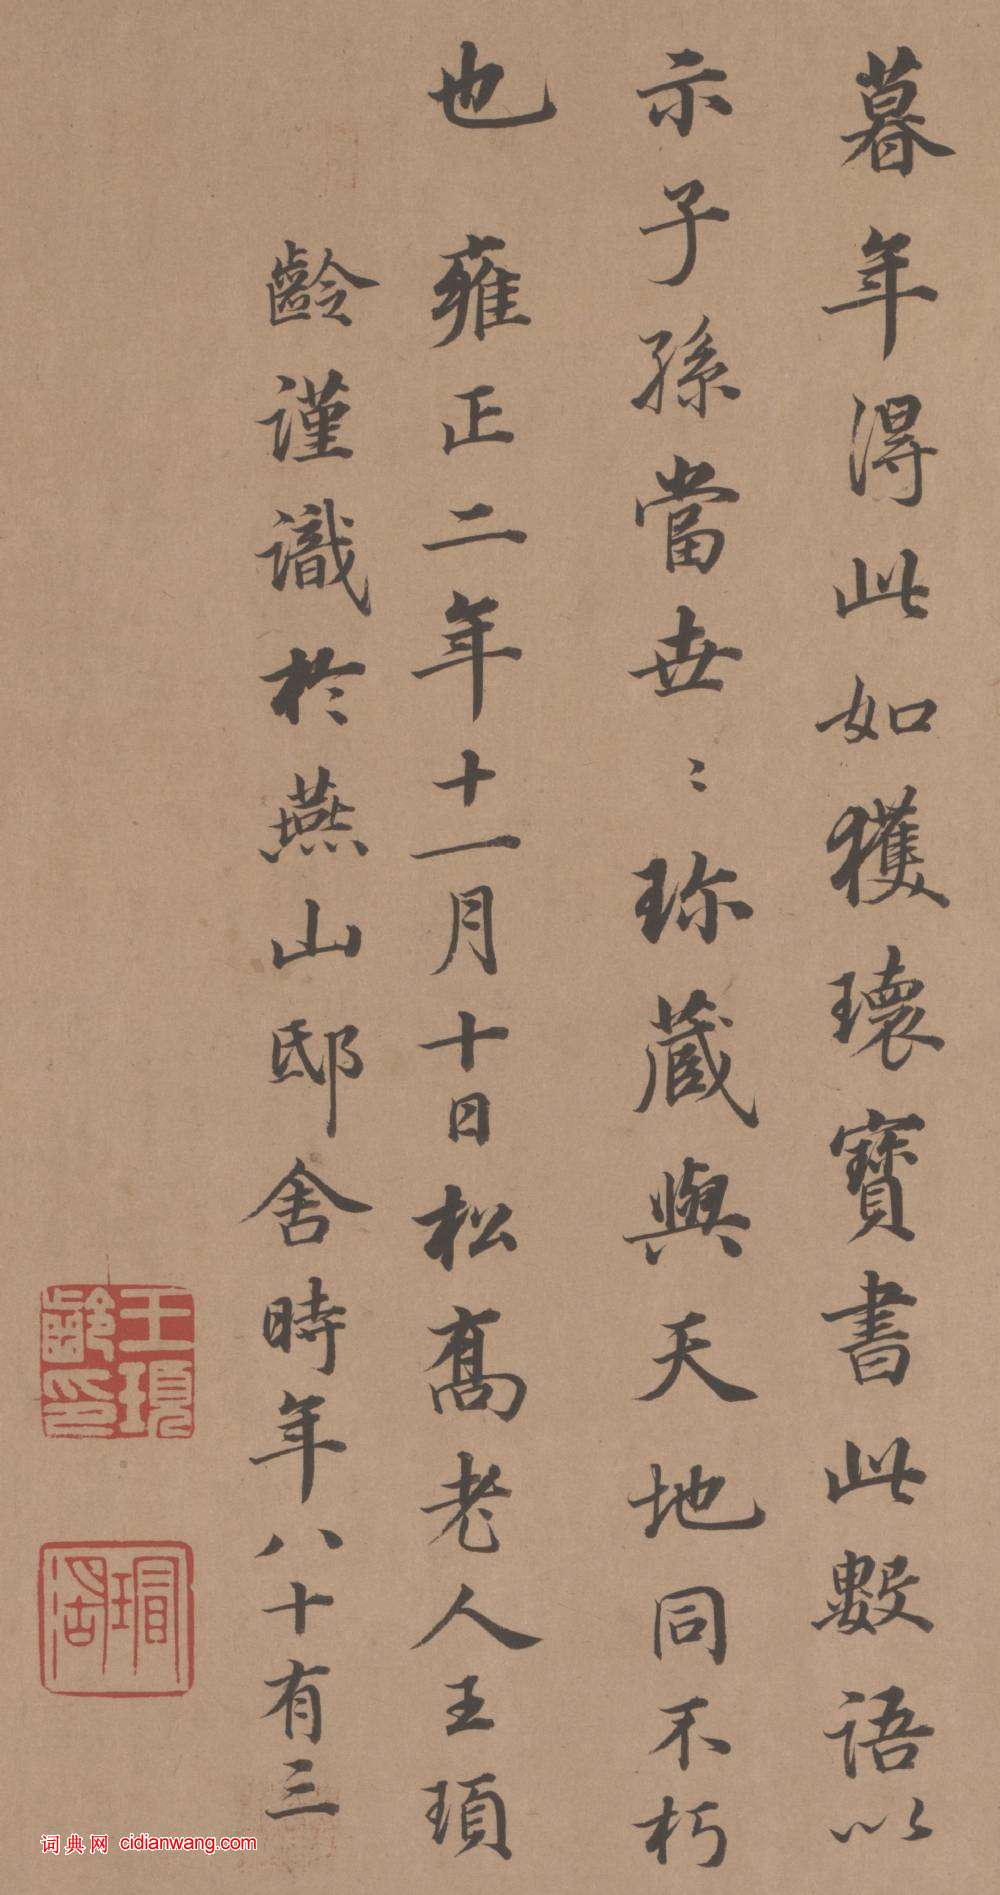 暮年得此如獲瓌寶書此數語以
示子孫當世〻珎藏與天地同不朽
也 雍正二年十一月十日松髙老人王頊
齡謹識於燕山邸舍時年八十有三
王頊齡印
瑁湖
词典网 cidianwang.com